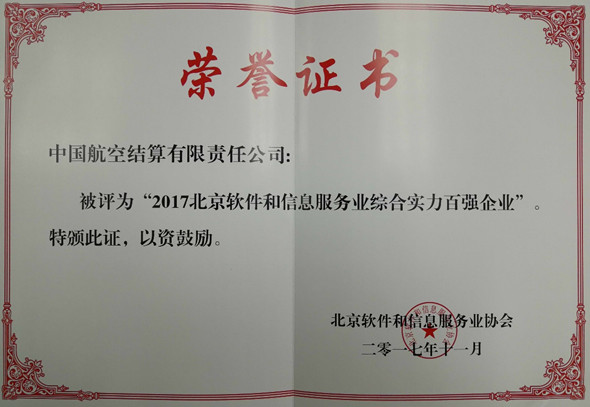 荣誉证书
中国航空结算有限责任公司:
被评为“2017北京软件和信息服务业综合实力百强企业”。
特颁此证,以资鼓励。
北京软件和信息服务业协会
二零一七年十一月